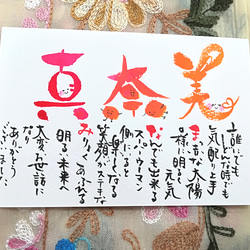 真奈美
誰にでも
どんな時でも
気配り上手
まるで太陽
様に明るく元気
なんでも出来る
スーパーウーマン
側にいると
楽しくなる
笑顔がステキな
みりょくあふれる
明るい未来へ
大変お世話に
なり
ありがとう
ございました